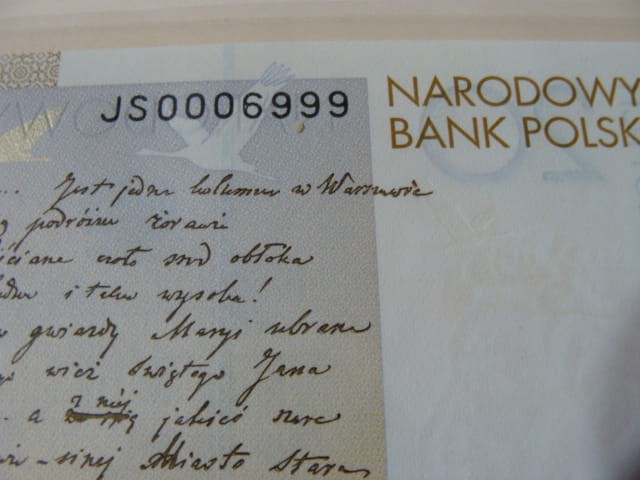 JS0006999
NARODOWY
BANK POLSK
... Jest jedna kolumna w Warszawie
podróżne żorawi
czoło śród obłoka
i taka wysoka!
gwiazdy Maryi ubrana
wież świętego Jana
z niéj
... a jakieś szare
-sinej Miasto Stare